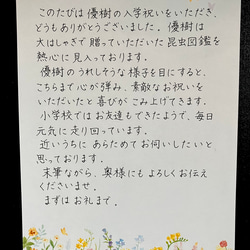 このたびは 優樹の入学祝いをいただき、
どうもありがとうございました。優樹は
大はしゃぎで 贈っていただいた 昆虫図鑑を
熱心に 見入っております。
優樹の うれしそうな 様子を目にすると、
こちらまで心が弾み、素敵なお祝いを
いただいたと 喜びが こみ上げてきます。
小学校では お友達もできたようで、毎日
元気に走り回っています。
近いうちに あらためてお伺いしたいと
思っております。
末筆ながら、奥様にも よろしくお伝え
くださいませ。
まずは お礼まで。